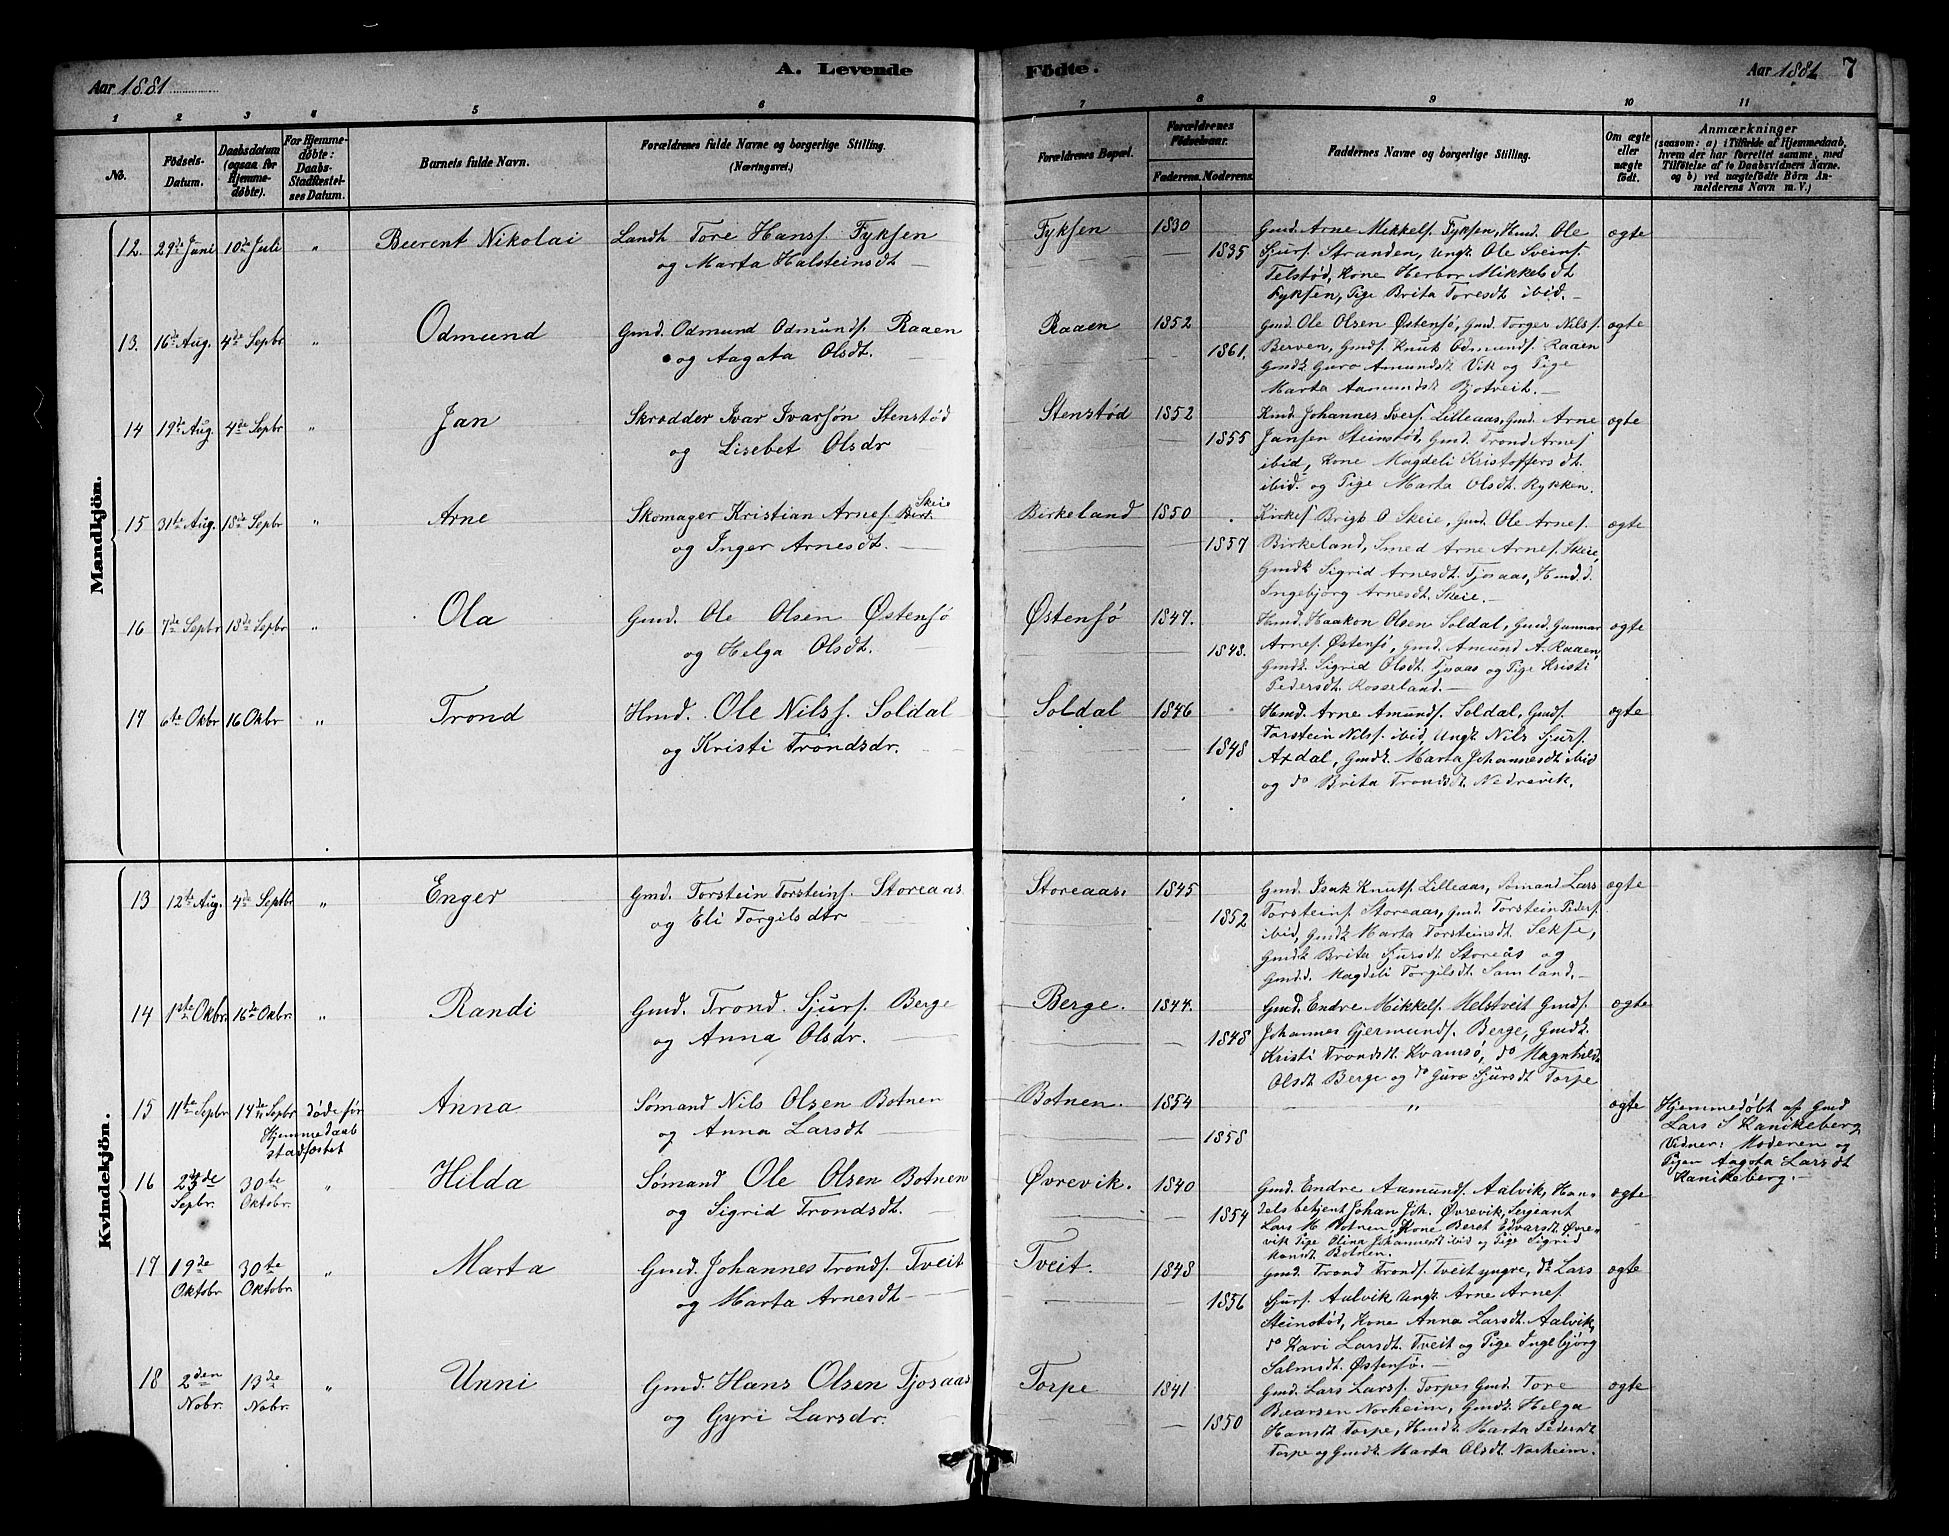 Aar 1881
A. Levende
Födte.
Aar 1881 7
1 2 3 4 5 6 7 8 9 10 11
No.
Födsels-Datum.
Daabsdatum (ogsaa for Hjemme-döbte).
For Hjemme-döbte: Daabs-Stadfæstel-ses Datum.
Barnets fulde Navn.
Forældrenes fulde Navne og borgerlige Stilling.
(Næringsvei.)
Forældrenes Bopæl.
Forældrenes Födselsaar.
Faderens. Moderens.
Faddernes Navne og borgerlige Stilling.
Om ægte eller uægte födt.
Anmærkninger
(saasom: a) i Tilfælde af Hjemmedaab,
hvem der har forrettet samme, med
Tilföielse af to Daabsvidners Navne.
og b) ved uægtefödte Börn An-
melderens Navn m. V.)
Mandkjön.
12. 29de Juni 10de Juli " Beerent Nikolai Landh Tore Hans. Fyksen Fyksen 1830 Gmd. Arne Mikkels. Fyksen, Hmd. Ole ægte
og Marta Halsteinsdt — 1835 Sjurs. Stranden, Ungk. Ole Sveins.
Telstød, Kone Herbor Mikkelsdt
Fyksen, Pige Brita Toresdt ibid. —
13. 16de Aug. 4de Sepbr " Odmund Gmd. Odmund Odmunds. Raaen Raaen 1852 Gmd. Ole Olsen Østensø, Gmd. Torger Nils. ægte
og Aagata Olsdt. — 1861. Berven, Gmds. Knut Odmunds. Raaen
Gmdk Guro Amundsdt Vik og Pige
Marta Aamundsdt Bjotveit. —
14 19de Aug. 4de Sepbr " Jan Skrædder Ivar Ivarsøn Stenstød Stenstød 1852 Kmd. Johannes Ivers. Lilleaas, Gmd. Arne ægte
og Lisebet Olsdr — 1855 Jansen Steinstød, Gmd. Trond Arnes.
ibid, Kone Magdeli Kristoffersdt.
ibid. og Pige Marta Olsdt. Rykken.
15 31te Aug. 18de Sepbr " Arne Skomager Kristian Arnes. Birk. Skeie Birkeland 1850 Kirkes. Brigt O Skeie, Gmd. Ole Arnes. ægte
og Inger Arnesdt. — 1857 Birkeland, Smed Arne Arnes. Skeie,
Gmdk Sigrid Arnesdt. Tjosaas, Hmd.d.
Ingebjørg Arnesdt. Skeie. —
16 7de Sepbr 18de Sepbr " Ola Gmd. Ole Olsen Østensø Østensø 1847. Hmd. Haakon Olsen Soldal, Gmd. Gunnar ægte
og Helga Olsdt. — 1848. Arnes. Østensø, Gmd. Amund A. Raaen,
Gmdk. Sigrid Olsdt. Tjosaas og Pige Kristi
Pedersdt. Kosseland. —
17 6te Okbr 16 Okbr " Trond Hmd. Ole Nils. Soldal Soldal 1846 Hmd. Arne Amunds. Soldal, Gmds. ægte
og Kristi Trondsdr. — 1848 Torstein Nils. ibid, Ungk. Nils Sjurs.
Axdal, Gmdk. Marta Johannesdt ibid
og do Brita Trondsdt. Nedrevik.
Kvindekjön.
13 12te Aug. 4de Septbr " Enger Gmd. Torstein Torsteins. Storeaas Storeaas. 1845 Gmd. Isak Knuts. Lilleaas, Sømand Lars ægte
og Eli Torgilsdtr 1852 Torsteins. Storeaas, Gmd. Torstein Peders.
ibid, Gmdk Marta Torsteinsdt. Sekse,
Gmdk Brita Sjursdt Storeås og
Gmd.d. Magdeli Torgilsdt. Samland. —
14 1ste Okbr. 16de Okbr. " Randi Gmd. Trond Sjurs. Berge Berge. 1844. Gmd. Endre Mikkels. Helstveit Gmds. ægte
og Anna Olsdr. — 1848 Johannes Gjermunds. Berge, Gmdk.
Kristi Trondsdt. Kvamsø, do Magnhild
Olsdt Berge og do Guro Sjursdt Torpe
15 11te Sepbr 14de Sepbr døde før Hjemmedaab stadfæstet Anna Sømand Nils Olsen Botnen Botnen. 1854 " ægte Hjemmedøbt af Gmd
og Anna Larsdt — 1858 Lars S Kanikeberg
Vidner: Moderen og
Pigen Aagota Larsdt
Kanikeberg. —
16 23de Sepbr. 30te Oktobr. " Hilda Sømand Ole Olsen Botnen Øvrevik. 1840 Gmd. Endre Aamunds. Aalvik, Han- ægte
og Sigrid Trondsdt. 1854 delsbetjent Johan Joh. Øvrevik, Sergeant
Lars M Botnen, Kone Beret Edvarsdt. Øvre-
vik Pige Olina Johannesdt ibid og Pige Sigrid
Hansdt Botnen.
17 19de Oktobr 30te Oktobr " Marta Gmd. Johannes Tronds. Tveit Tveit. 1848 Gmd. Trond Tronds. Tveit yngre, do Lars ægte
og Marta Arnesdt — 1856 Sjurs. Aalvik Ungk. Arne Arnes.
Steinstød, Kone Anna Larsdt. Aalvik,
do Kari Larsdt. Tveit og Pige Ingebjørg
Salmsdt. Østensø. —
18 2den Nobr. 13de Nobr. " Unni Gmd. Hans Olsen Tjosaas Torpe 1841 Gmd. Lars Lars. Torpe, Gmd. Tore ægte
og Gyri Larsdr. — 1850 Beersen Norheim, Gmdk. Helga
Hansdt Torpe, Hmdk. Marta Pedersdt
Torpe og Gmdk. Marta Olsdt Norheim.